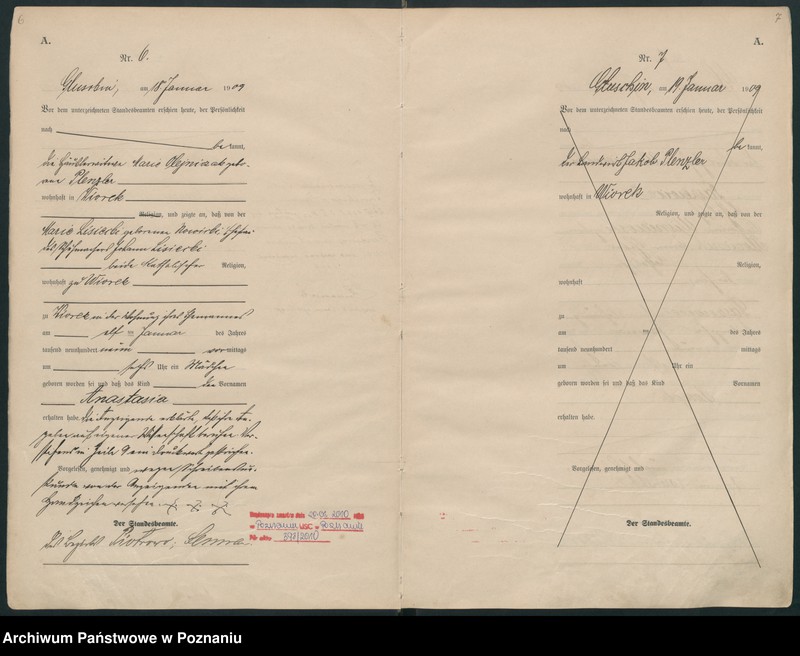 6
A.
Nr. 6.
Gluschin, am 18 Januar 1909
Vor dem unterzeichneten Standesbeamten erschien heute, der Persönlichkeit
nach
be kannt,
die Häuslerwitwe Marie Olejniczak gebo-
rene Plenzler
wohnhaft in Wiorek
Religion, und zeigte an, daß von der
Marie Lisiecki geborenen Nowicki, Ehefrau
des Johann Lisiecki
beide katholischer Religion,
wohnhaft zu Wiorek
zu Wiorek in der Wohnung ihres Ehemannes
am elf ten Januar des Jahres
tausend neunhundert neun vor mittags
um sechs Uhr ein Mädchen
geboren worden sei und daß das Kind den Vornamen
Anastasia
erhalten habe. Die Anzeigende erklärte,
Vorgelesen, genehmigt und wegen Schreibens
von der Anzeigenden mit ihrem
Handzeichen versehen. + + +
Der Standesbeamte.
29.06.2010
Poznaniu USC Poznaniu
397/2010
7
A.
Nr. 7
Gluschin, am 19 Januar 1909
Vor dem unterzeichneten Standesbeamten erschien heute, der Persönlichkeit
nach
be kannt,
der Landwirt Jakob Plenzler
wohnhaft in Wiorek
Religion, und zeigte an, daß von der
Religion,
wohnhaft
zu
am ten des Jahres
tausend neunhundert mittags
um Uhr ein
geboren worden sei und daß das Kind Vornamen
erhalten habe.
Vorgelesen, genehmigt und
Der Standesbeamte.
Archiwum Państwowe w Poznaniu